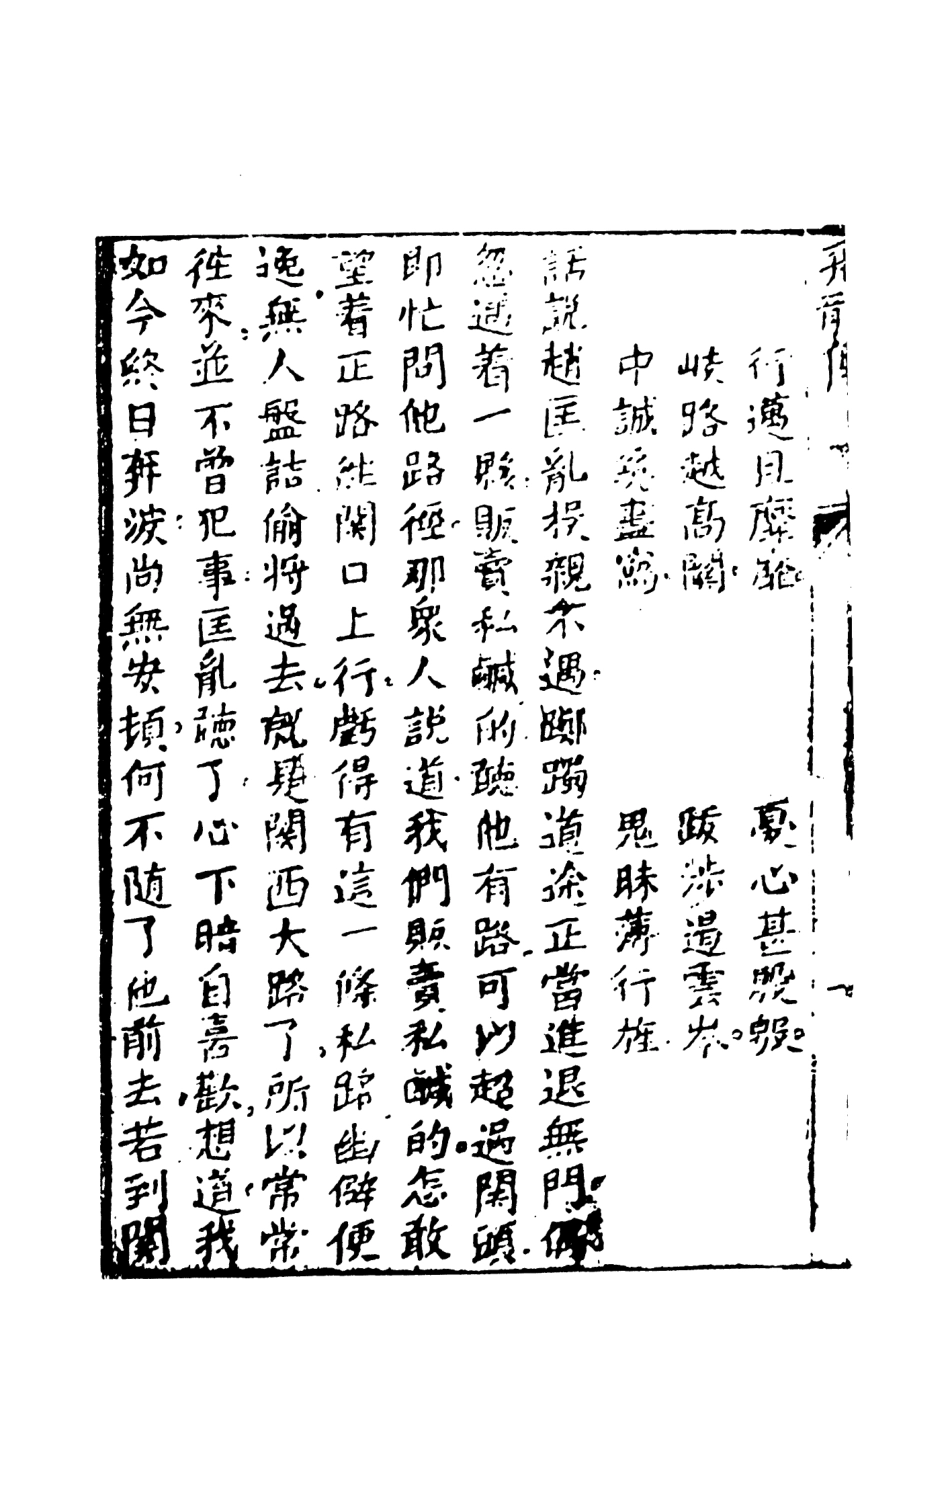 行邁日靡臨 憂心甚殷殷
岐路越高關 跋涉過雲岑
中誠 盡寫 鬼昧薄行旌
話說趙匡亂投親不遇躑躅道途正當進退無門偶
忽遇着一夥販賣私鹹的聽他有路可以超過関頭
即忙問他路徑那衆人說道我們販賣私鹹的怎敢
望着正路徃関口上行虧得有這一條私路幽僻便
逸無人盤詰偷將過去就是関西大路了所以常常
徃來並不曾犯事匡亂聴了心下暗自喜歡想道我
如今終日奔波尚無安頓何不随了他前去若到関